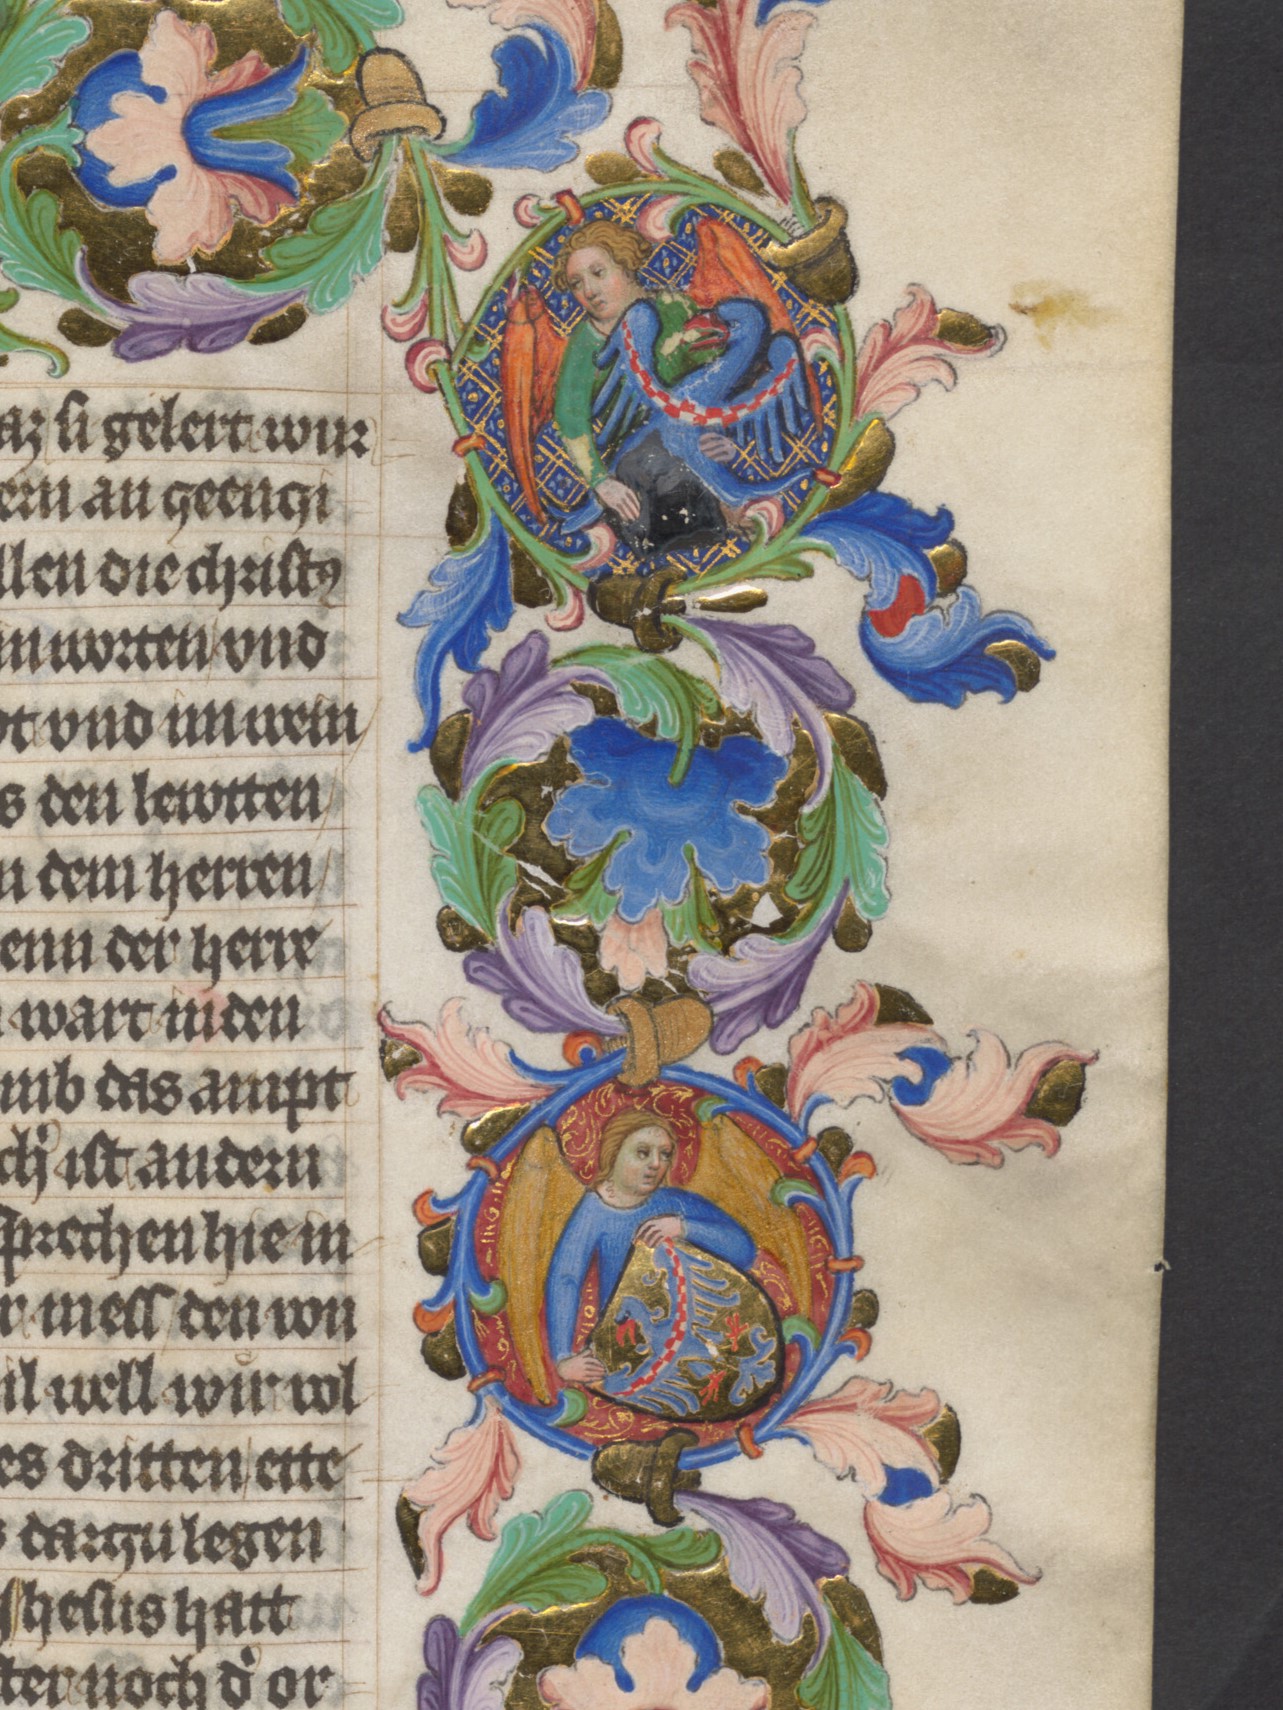 az si gelert wur
ern an geengi
llen die christꝰ
in worten vnd
ot vnd im wein
s den lewtten
n dem herren
enn der herre
wart in den
mb das ampt
ch ist andern
sprechen hie in
r mess den wn
il well wir vol
es dritten ette
s darzu legen
Jhesus hatt
ster noch d̓ or